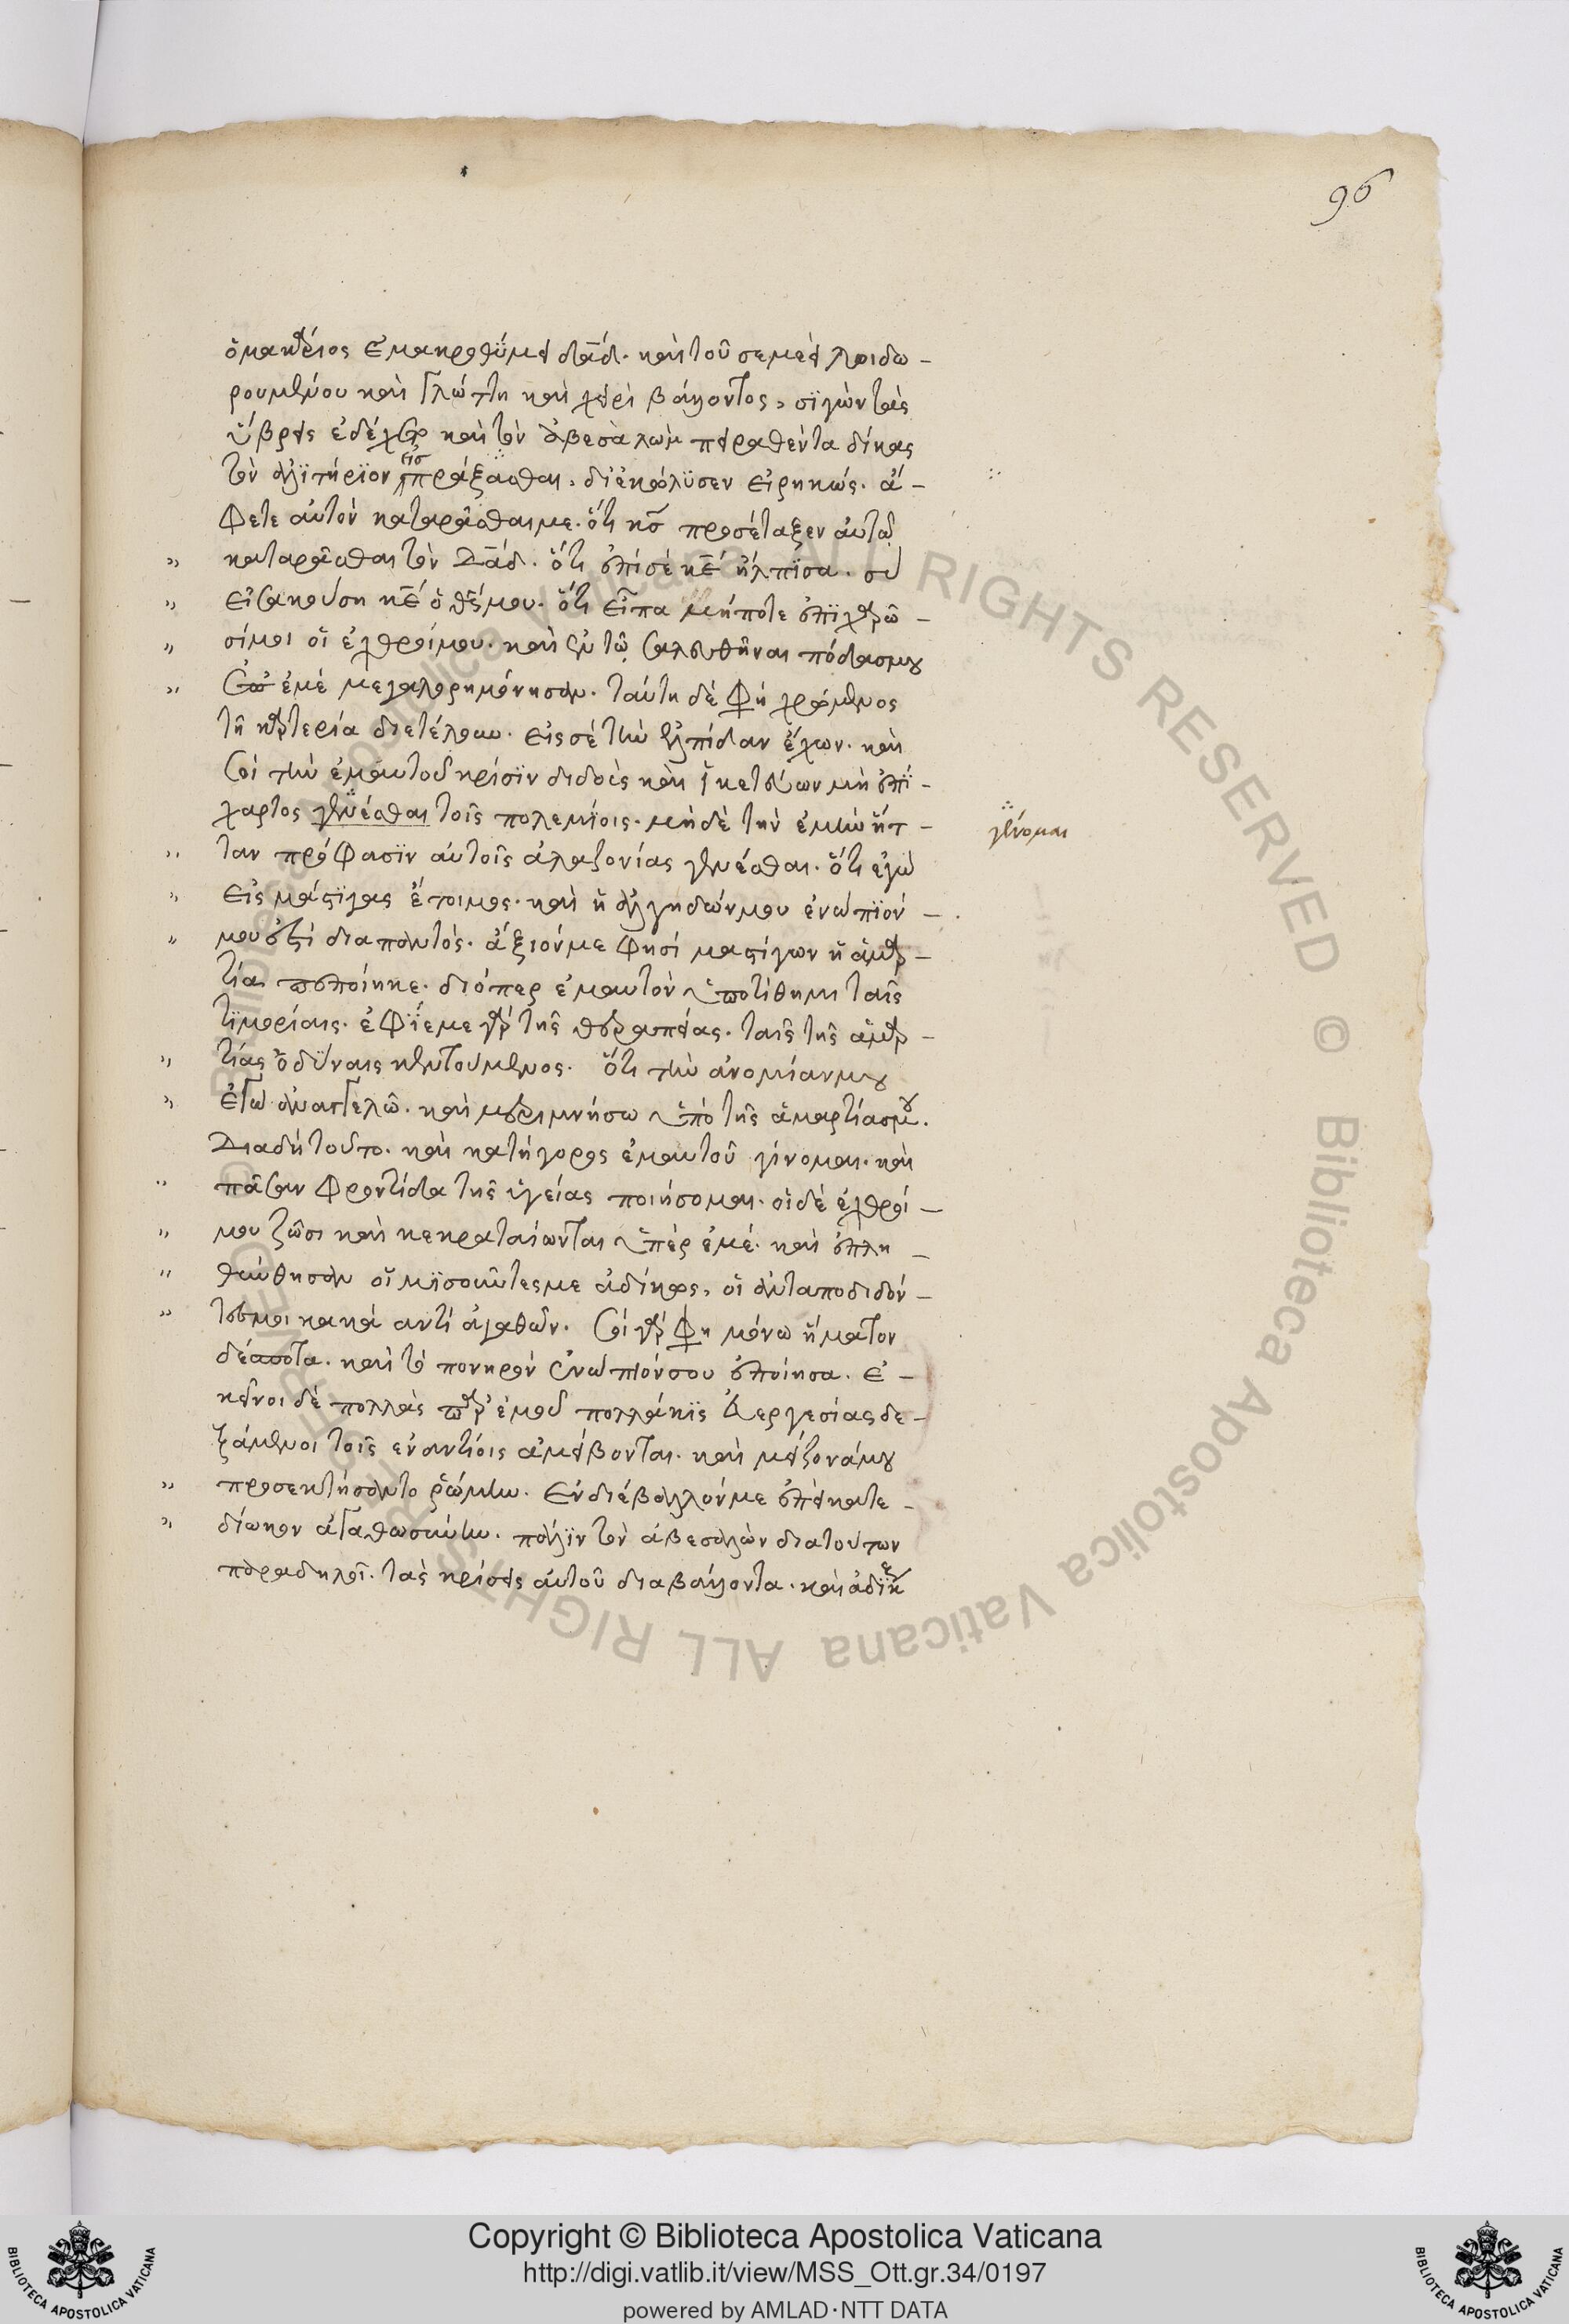 96
ὁ μακάριος ἐμακροθύμει δᾱδ. καὶ τοῦ σεμεεὶ λοιδω -
ρουμένου καὶ γλώττη καὶ χειρὶ βάλλοντος, σϊγῶν τὰς
ὕβρεις ἐδέχετο καὶ τὸν ἀβεσαλὼμ πειραθέντα δίκας
τὸν ἀλϊτήριον εἰσπράξασθαι, διεκώλϋσεν εἰρηκώς. ἄ -
φετε αὐτὸν καταρᾶσθαι με. ὅτι κ̄ς̄ προσέταξεν αὐτῶ
καταρᾶσθαι τὸν Δᾱδ. ὅτι ἐπὶ σὲ κ̄ε̄ ἤλπϊσα. σὺ
εἰσακούση κ̄ε̄ ὁ θ̄ς̄ μου. ὅτι εἶπα μήποτε ἐπϊχαρῶ -
σί μοι οἱ ἐχθροί μου. καὶ ἐν τῶ σαλευθῆναι πόδας μου
ἐμὲ μεγαλορημόνησαν. ταύτη δέ φη χρώμενος
τῆ καρτερία διετέλουν. εἰς σὲ τὴν ἐλπίδαν ἔχων. καὶ
σοὶ τὴν ἐμαυτοῦ κρίσϊν διδοὺς καὶ ἱκετεύων μὴ ἐπϊ -
χαρτος γενέσθαι τοῖς πολεμίοις. μὴ δὲ τὴν ἐμὴν ἧτ -
γίνομαι
ταν πρόφασϊν αὐτοῖς ἀλαζονίας γενέσθαι. ὅτι ἐγὼ
εἰς μάστϊγας ἕτοιμος. καὶ ἡ ἀλγηδών μου ἐνώπϊόν -
μου ἐστὶ διαπαντός. ἄξιόν με φησὶ μαστίγων ἡ ἁμαρ -
τία πεποίηκε. διόπερ ἐμαυτὸν ὑποτίθημι ταῖς
τϊμορίαις. ἐφΐεμε γὰρ τῆς θεραπείας. ταῖς τῆς ἁμαρ -
τίας ὀδύναις κεντούμενος. ὅτι τὴν ἀνομίαν μου
ἐγὼ ἀναγγελῶ. καὶ μεριμνήσω ὑπὸ τῆς ἁμαρτίας μου.
Διαδὴ τοῦτο. καὶ κατήγορος ἐμαυτοῦ γίνομαι. καὶ
πᾶσαν φροντίδα τῆς ὑγείας ποιήσομαι. οἱ δὲ ἐχθροί -
μου ζῶσι καὶ κεκραταίωνται ὑπὲρ ἐμέ. καὶ ἐπλη -
θύνθησαν οἱ μϊσοῦντες με ἀδίκως, οἱ ἀνταποδιδόν -
τες μοι κακὰ αντὶ ἀγαθῶν. Σοὶ γὰρ φη μόνω ἥματον
δέσποτα. καὶ τὸ πονηρὸν ἐνώπιόν σου ἐποίησα. ἐ -
κεῖνοι δὲ πολλὰς παρ' ἐμοῦ πολλάκϊς εὐεργεσίας δε -
ξάμενοι τοῖς εναντίοις ἀμείβονται. καὶ μείζονά μου
προσεκτήσαντο ῥώμην. Ενδιέβαλλόν με ἐπεὶ κατε -
δίωκον ἀγαθωσύνην. πάλϊν τὸν ἀβεσαλὼν δια τούτων
παραδηλοῖ. τὰς κρίσεις αὐτοῦ διαβάλλοντα. καὶ ἀδϊκ